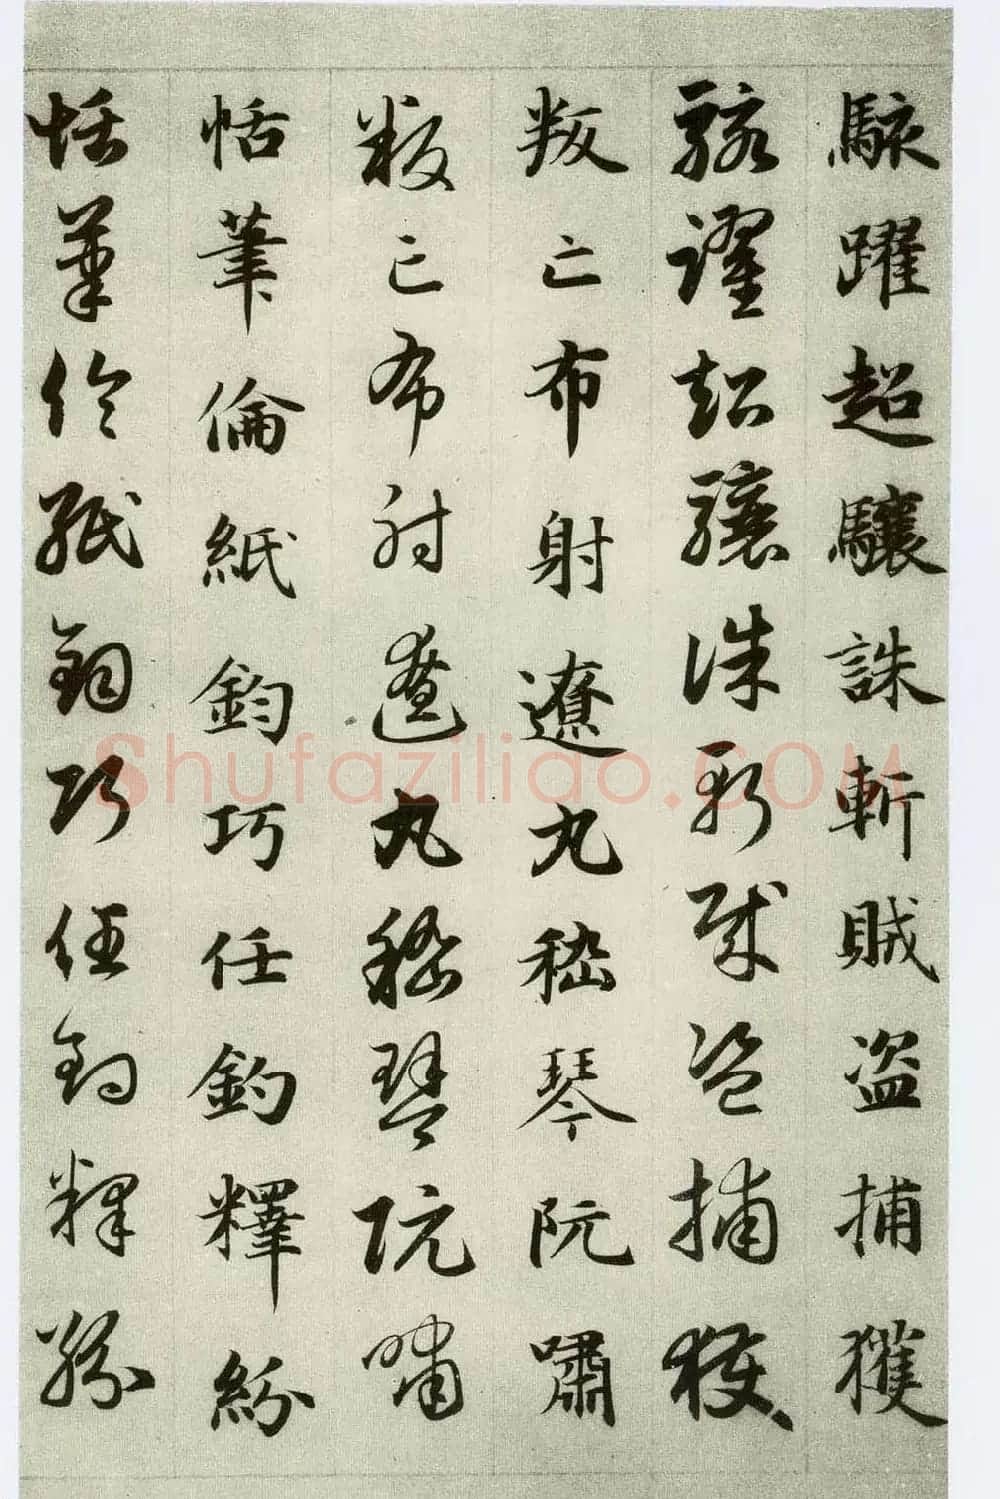 駭躍超驤誅斬賊盗捕獲
駭躍超驤誅斬賊盗捕獲
叛亡布射遼丸嵇琴阮嘯
叛亡布射遼丸嵇琴阮嘯
恬筆倫紙鈞巧任釣釋紛
恬筆倫紙鈞巧任釣釋紛
Shufaziliao.COM